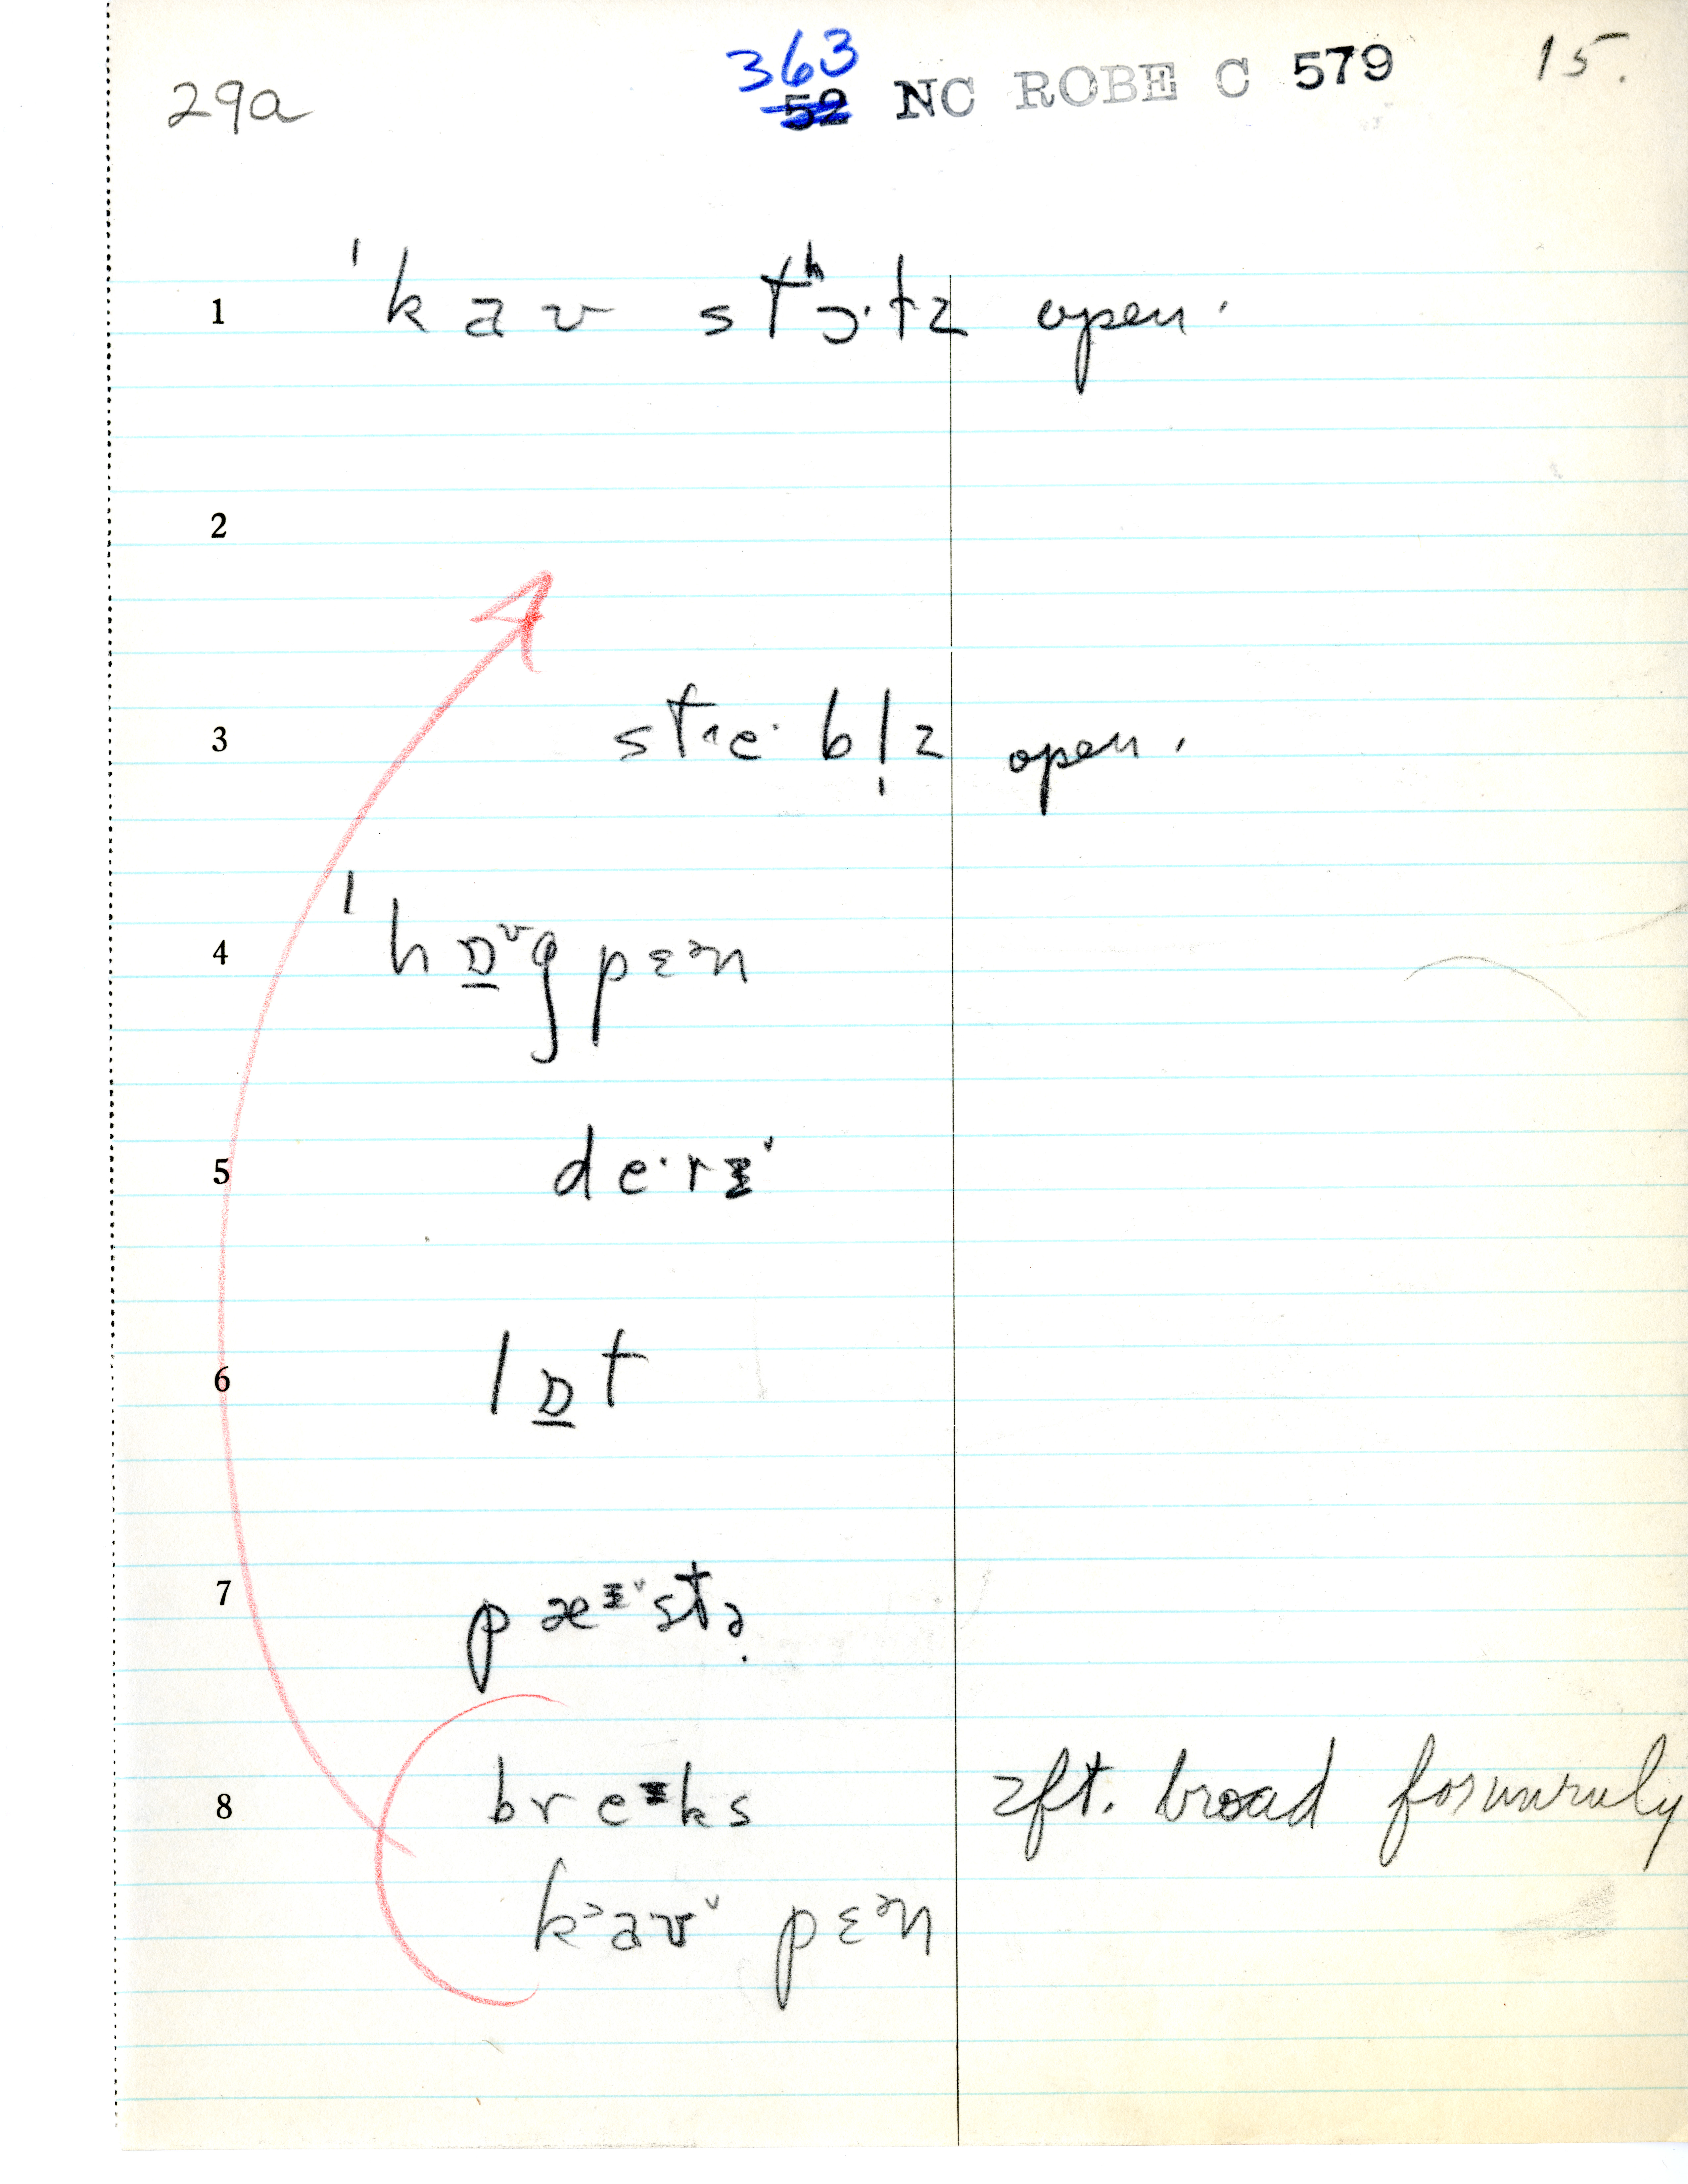 29a
363
52 NC ROBE C 579
15.
1 ˈkaʊ stʰɔ·tz open.
2
3 stɹe·bl̩z open.
4 ˈhɒ̲ᶷg pɛᵊn
5 de·rɪ˅
6 lɒ̲t
7 pæᶦ˅stə̣
8 breᶦks 2ft. broad for unruly
k˃aʊ˅ pɛᵊn